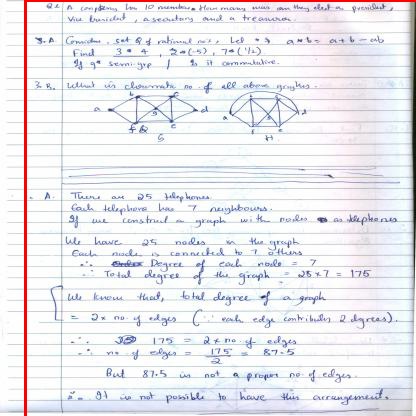 A company has 10 members. How many ways can they elect a president,
Vice President, a secretary and a treasurer.
3.A. Consider, set Q of rational nos, Let * is a*b = a+b-ab
Find 3*4, 2*(-5), 7*(1/2)
If Q semi-grp / Is it commutative.
3.B. What is chromatic no. of all above graphs.
a b c d e f g
G
a b c d e f
H
A. There are 25 telephones.
Each telephone has 7 neighbours.
If we construct a graph with nodes as telephones
We have 25 nodes in the graph
Each node is connected to 7 others
∴ Degree of each node = 7
∴ Total degree of the graph = 25×7 = 175
We know that, total degree of a graph
= 2× no. of edges (∵ each edge contributes 2 degrees).
∴ 175 = 2× no. of edges
∴ no. of edges = 175/2 = 87.5
But 87.5 is not a proper no. of edges.
∴ It is not possible to have this arrangement.